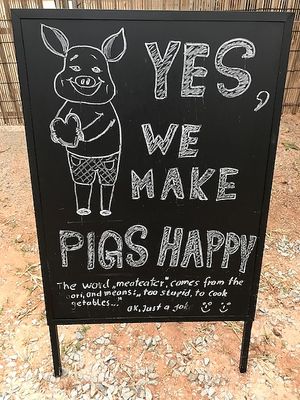 YES,
WE
MAKE
PIGS HAPPY
The word „meateater", comes from the
ori, and means: „ too stupid, to cook
getables..."
OK, Just a jok